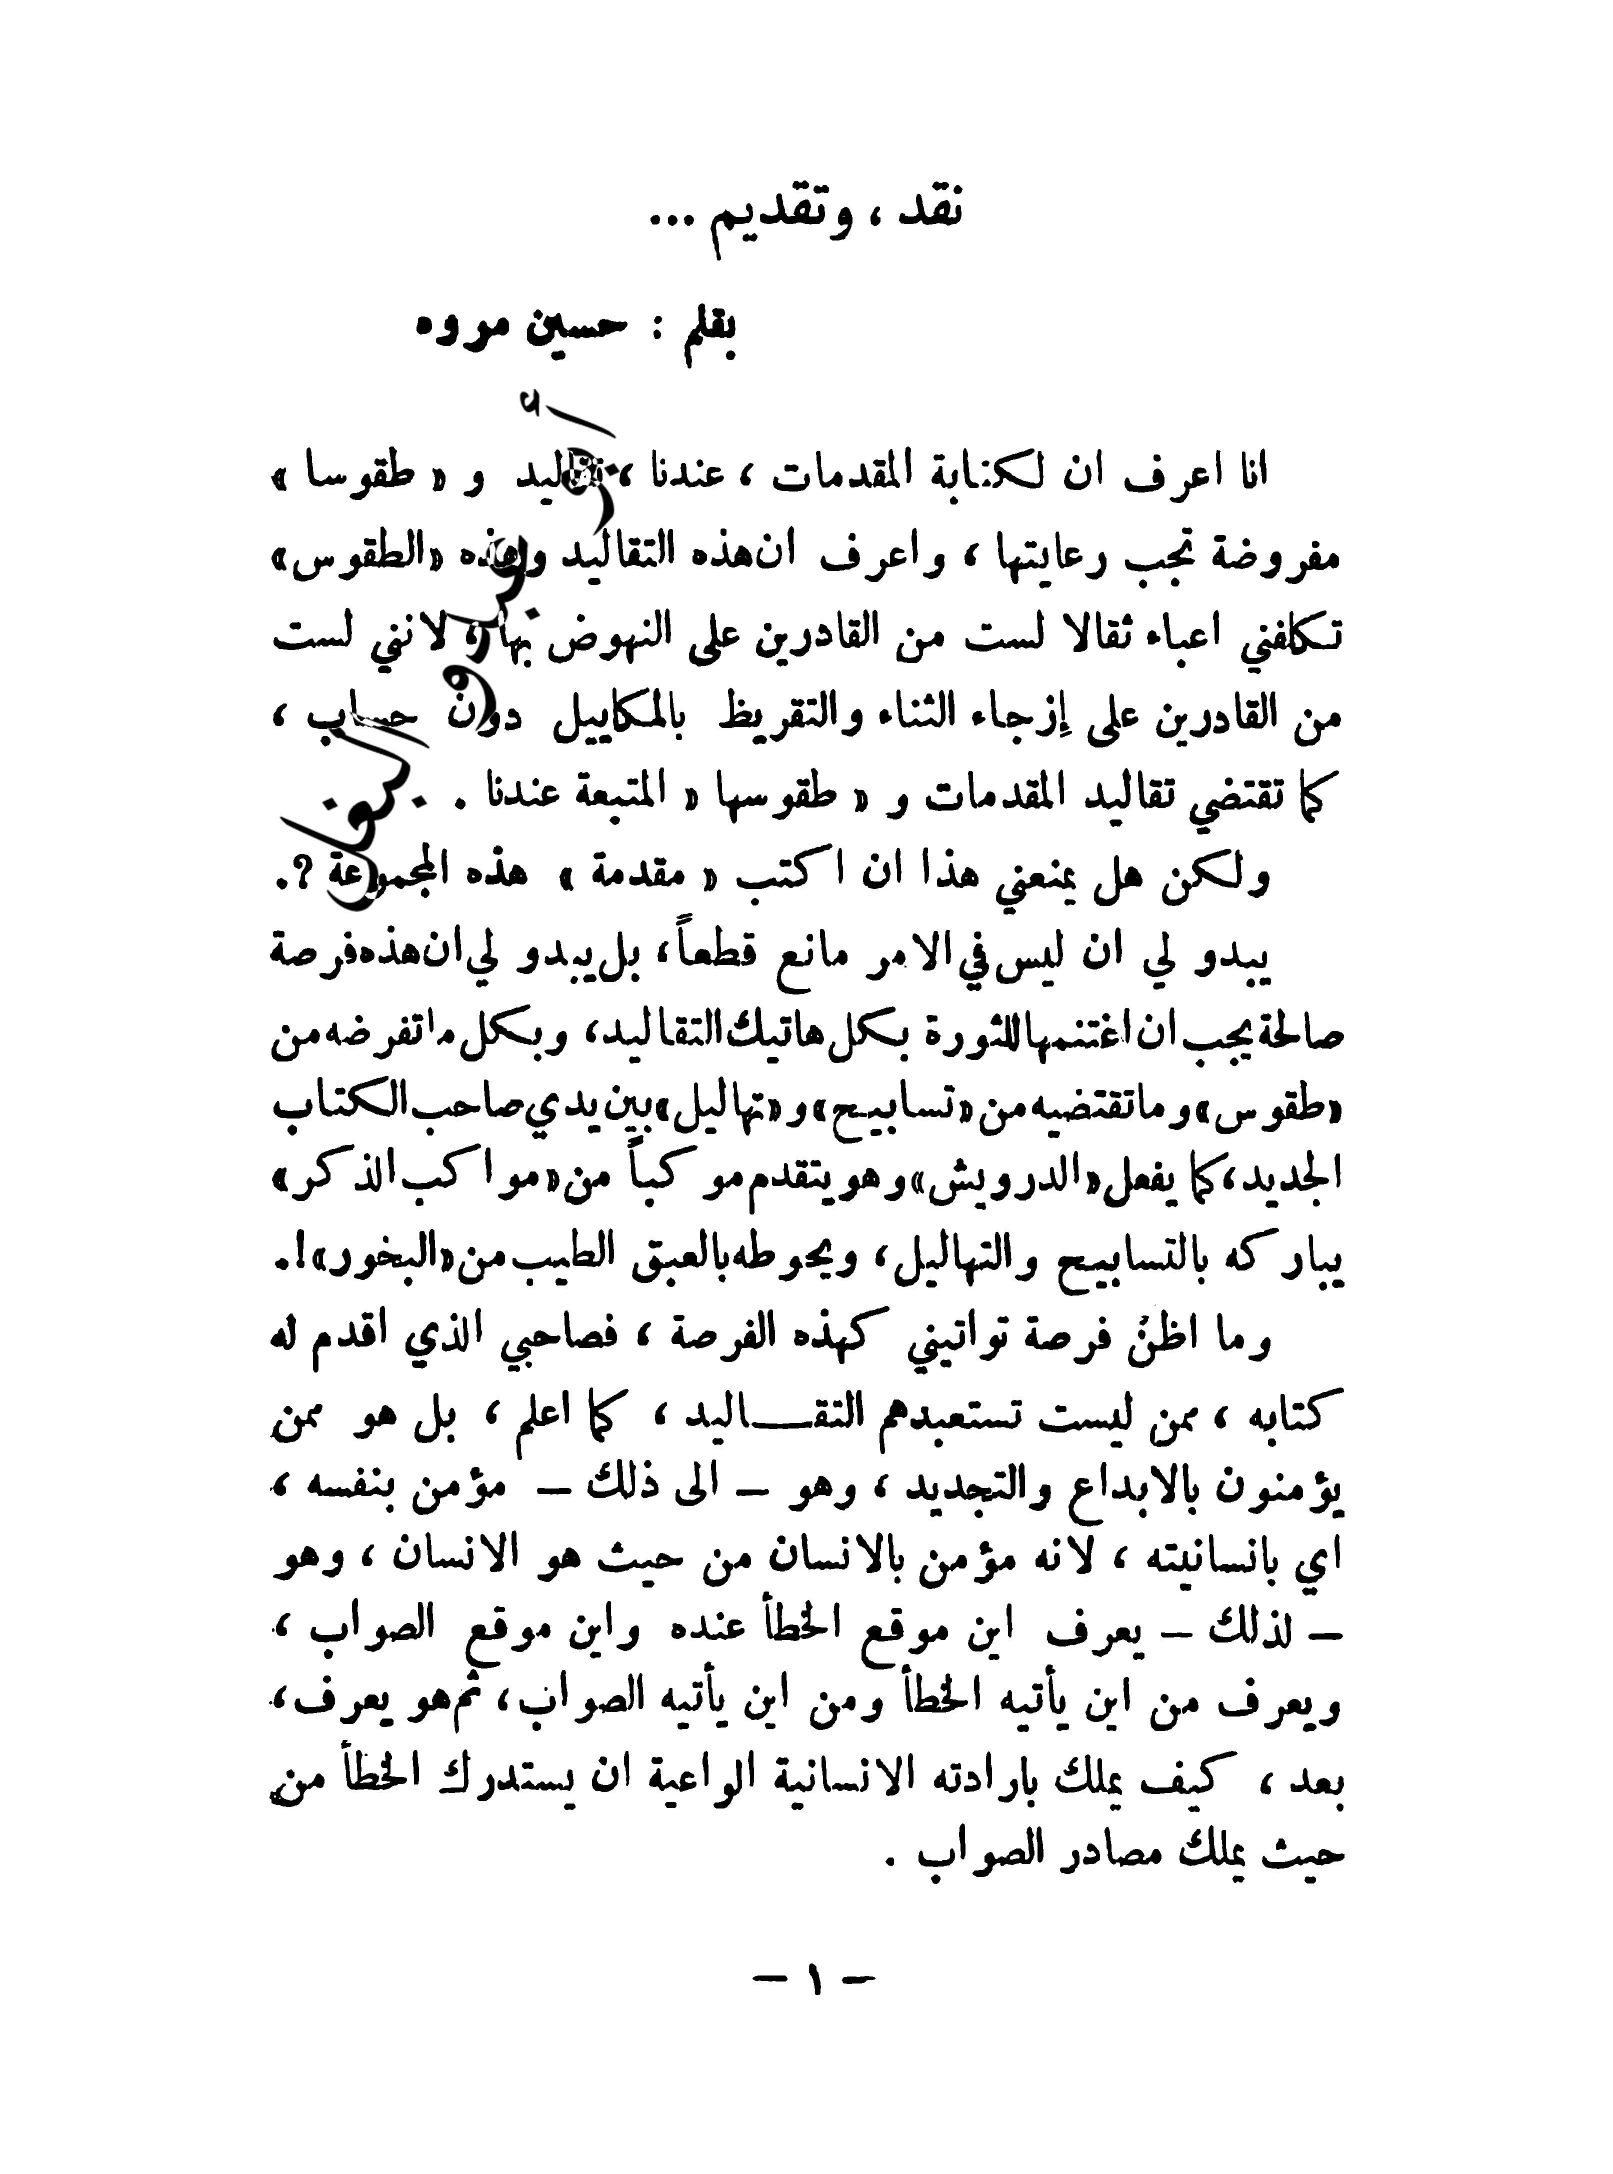 نقد ، وتقديم ...
بقلم : حسين مروه
انا اعرف ان لكتابة المقدمات ، عندنا ، تقاليد و « طقوسا »
مفروضة تجب رعايتها ، واعرف ان هذه التقاليد وهذه «الطقوس»
تكلفني اعباء ثقالا لست من القادرين على النهوض بها ، لانني لست
من القادرين على إزجاء الثناء والتقريظ بالمكاييل دون حساب ،
كما تقتضي تقاليد المقدمات و « طقوسها « المتبعة عندنا .
ولكن هل يمنعني هذا ان اكتب « مقدمة » هذه المجموعة ؟.
يبدو لي ان ليس في الامر مانع قطعاً، بل يبدو لي ان هذه فرصة
صالحة يجب ان اغتنمها للثورة بكل هاتيك التقاليد، وبكل ماتفرضه من
«طقوس» وماتقتضيه من «تسابيح» و«تهاليل» بين يدي صاحب الكتاب
الجديد، كما يفعل «الدرويش» وهو يتقدم موكباً من «مواكب الذكر»
يباركه بالتسابيح والتهاليل، ويحوطه بالعبق الطيب من «البخور»!.
وما اظنُ فرصة تواتيني كهذه الفرصة ، فصاحبي الذي اقدم له
كتابه ، ممن ليست تستعبدهم التقـــاليد ، كما اعلم ، بل هو ممن
يؤمنون بالابداع والتجديد ، وهو – الى ذلك – مؤمن بنفسه ،
اي بانسانيته ، لانه مؤمن بالانسان من حيث هو الانسان ، وهو
– لذلك – يعرف اين موقع الخطأ عنده واين موقع الصواب ،
ويعرف من اين يأتيه الخطأ ومن اين يأتيه الصواب، ثم هو يعرف،
بعد ، كيف يملك بارادته الانسانية الواعية ان يستدرك الخطأ من
حيث يملك مصادر الصواب .
– ١ –